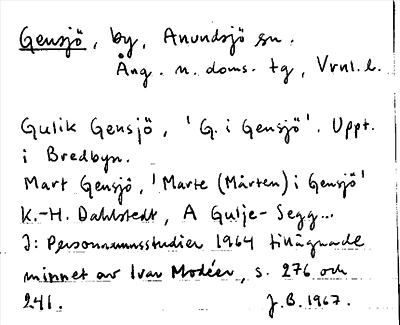 Gensjö, by, Anundsjö sn.
Ång. n. doms. tg, Vrnl. l.
Gulik Gensjö, 'G. i Gensjö'. Uppt.
i Bredbyn.
Mart Gensjö, 'Marte (Mårten) i Gensjö'
K.-H. Dahlstedt, A Gulje-Segg...
I: Personnamnsstudier 1964 tillägnade
minnet av Ivar Modéer, s. 276 och
241.
J.B. 1967.